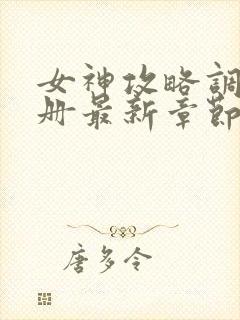 女神攻略調
册最新章節
唐多令